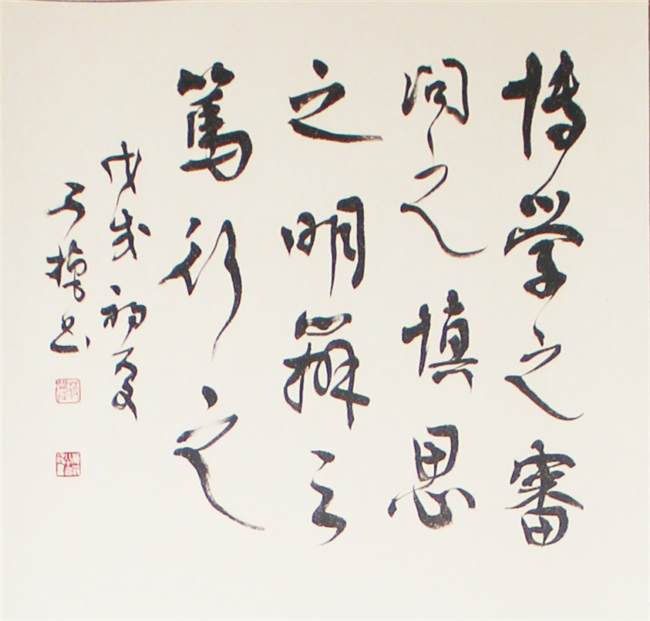 博学之審
问之慎思
之明辨之
篤行之
戊戌初夏
书